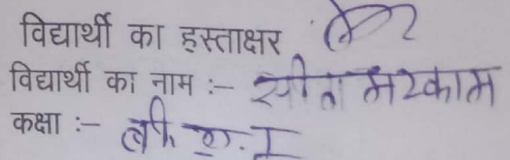 विद्यार्थी का हस्ताक्षर
विद्यार्थी का नाम :– सीता मरकाम
कक्षा :– बी.ए. I